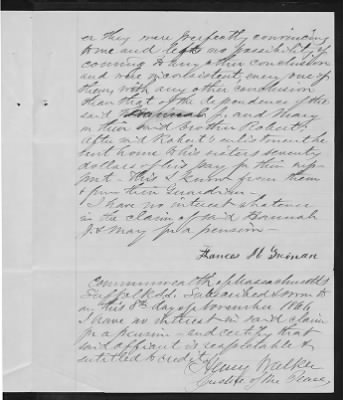 or they were perfectly convincing
to me and left no possibility of
coming to any other conclusion
and were inconsistent, every one of
them, with any other conclusion
than that of the dependence of the
said Hannah J. and Mary
on their said brother Robert;
after said Robert's enlistment he
sent home to his sisters seventy
dollars of his pay for their sup-
port - This I know from them
& from their Guardian -
I have no interest whatever
in the claim of said Hannah
J. & Mary for a pension -
Frances M
Commonwealth of Massachusetts
Suffolk ss. Subscribed & sworn to
on this 8th day of November 1866
I have no interest in said claim
for a pension - and certify that
said affiant is respectable &
entitled to credit
Henry Walker
Justice of the Peace